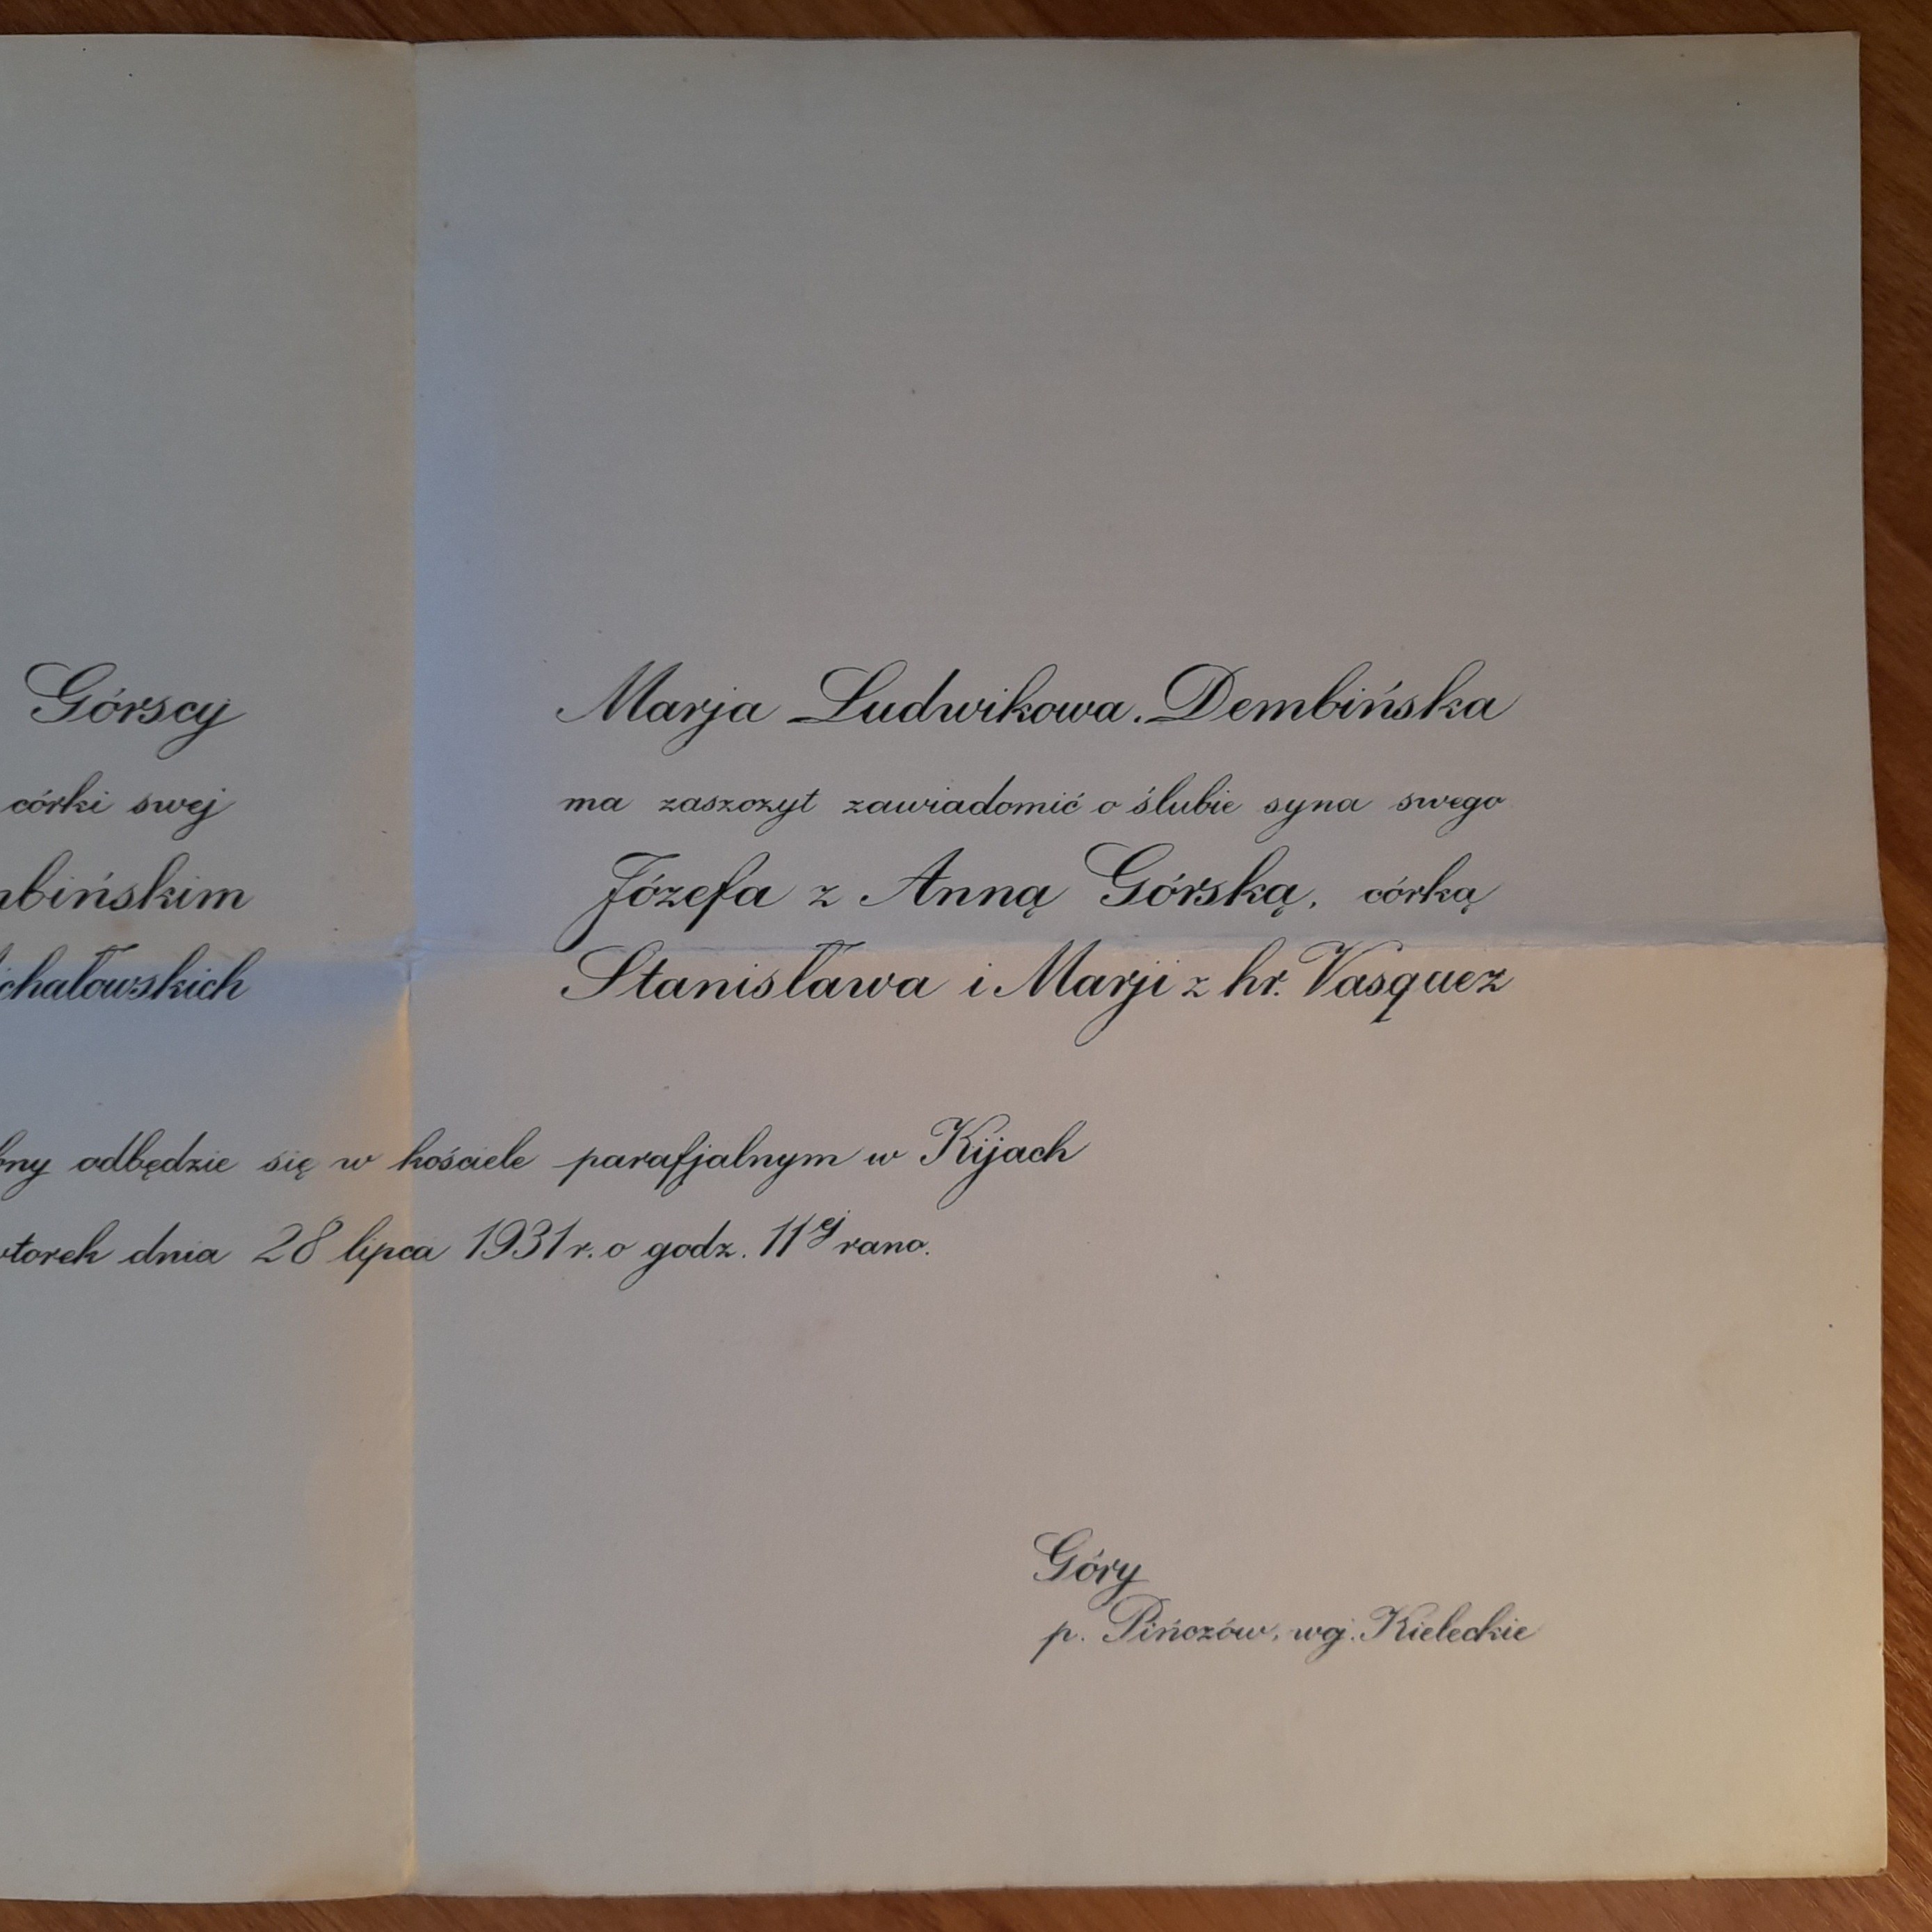 Górscy
córki swej
mbińskim
ichałowskich
Marja Ludwikowa Dembińska
ma zaszczyt zawiadomić o ślubie syna swego
Józefa z Anną Górską, córką
Stanisława i Marji z hr. Vasquez
bny odbędzie się w kościele parafjalnym w Kijach
wtorek dnia 28 lipca 1931 r. o godz. 11ej rano.
Góry
p. Pińczów, wj. Kieleckie